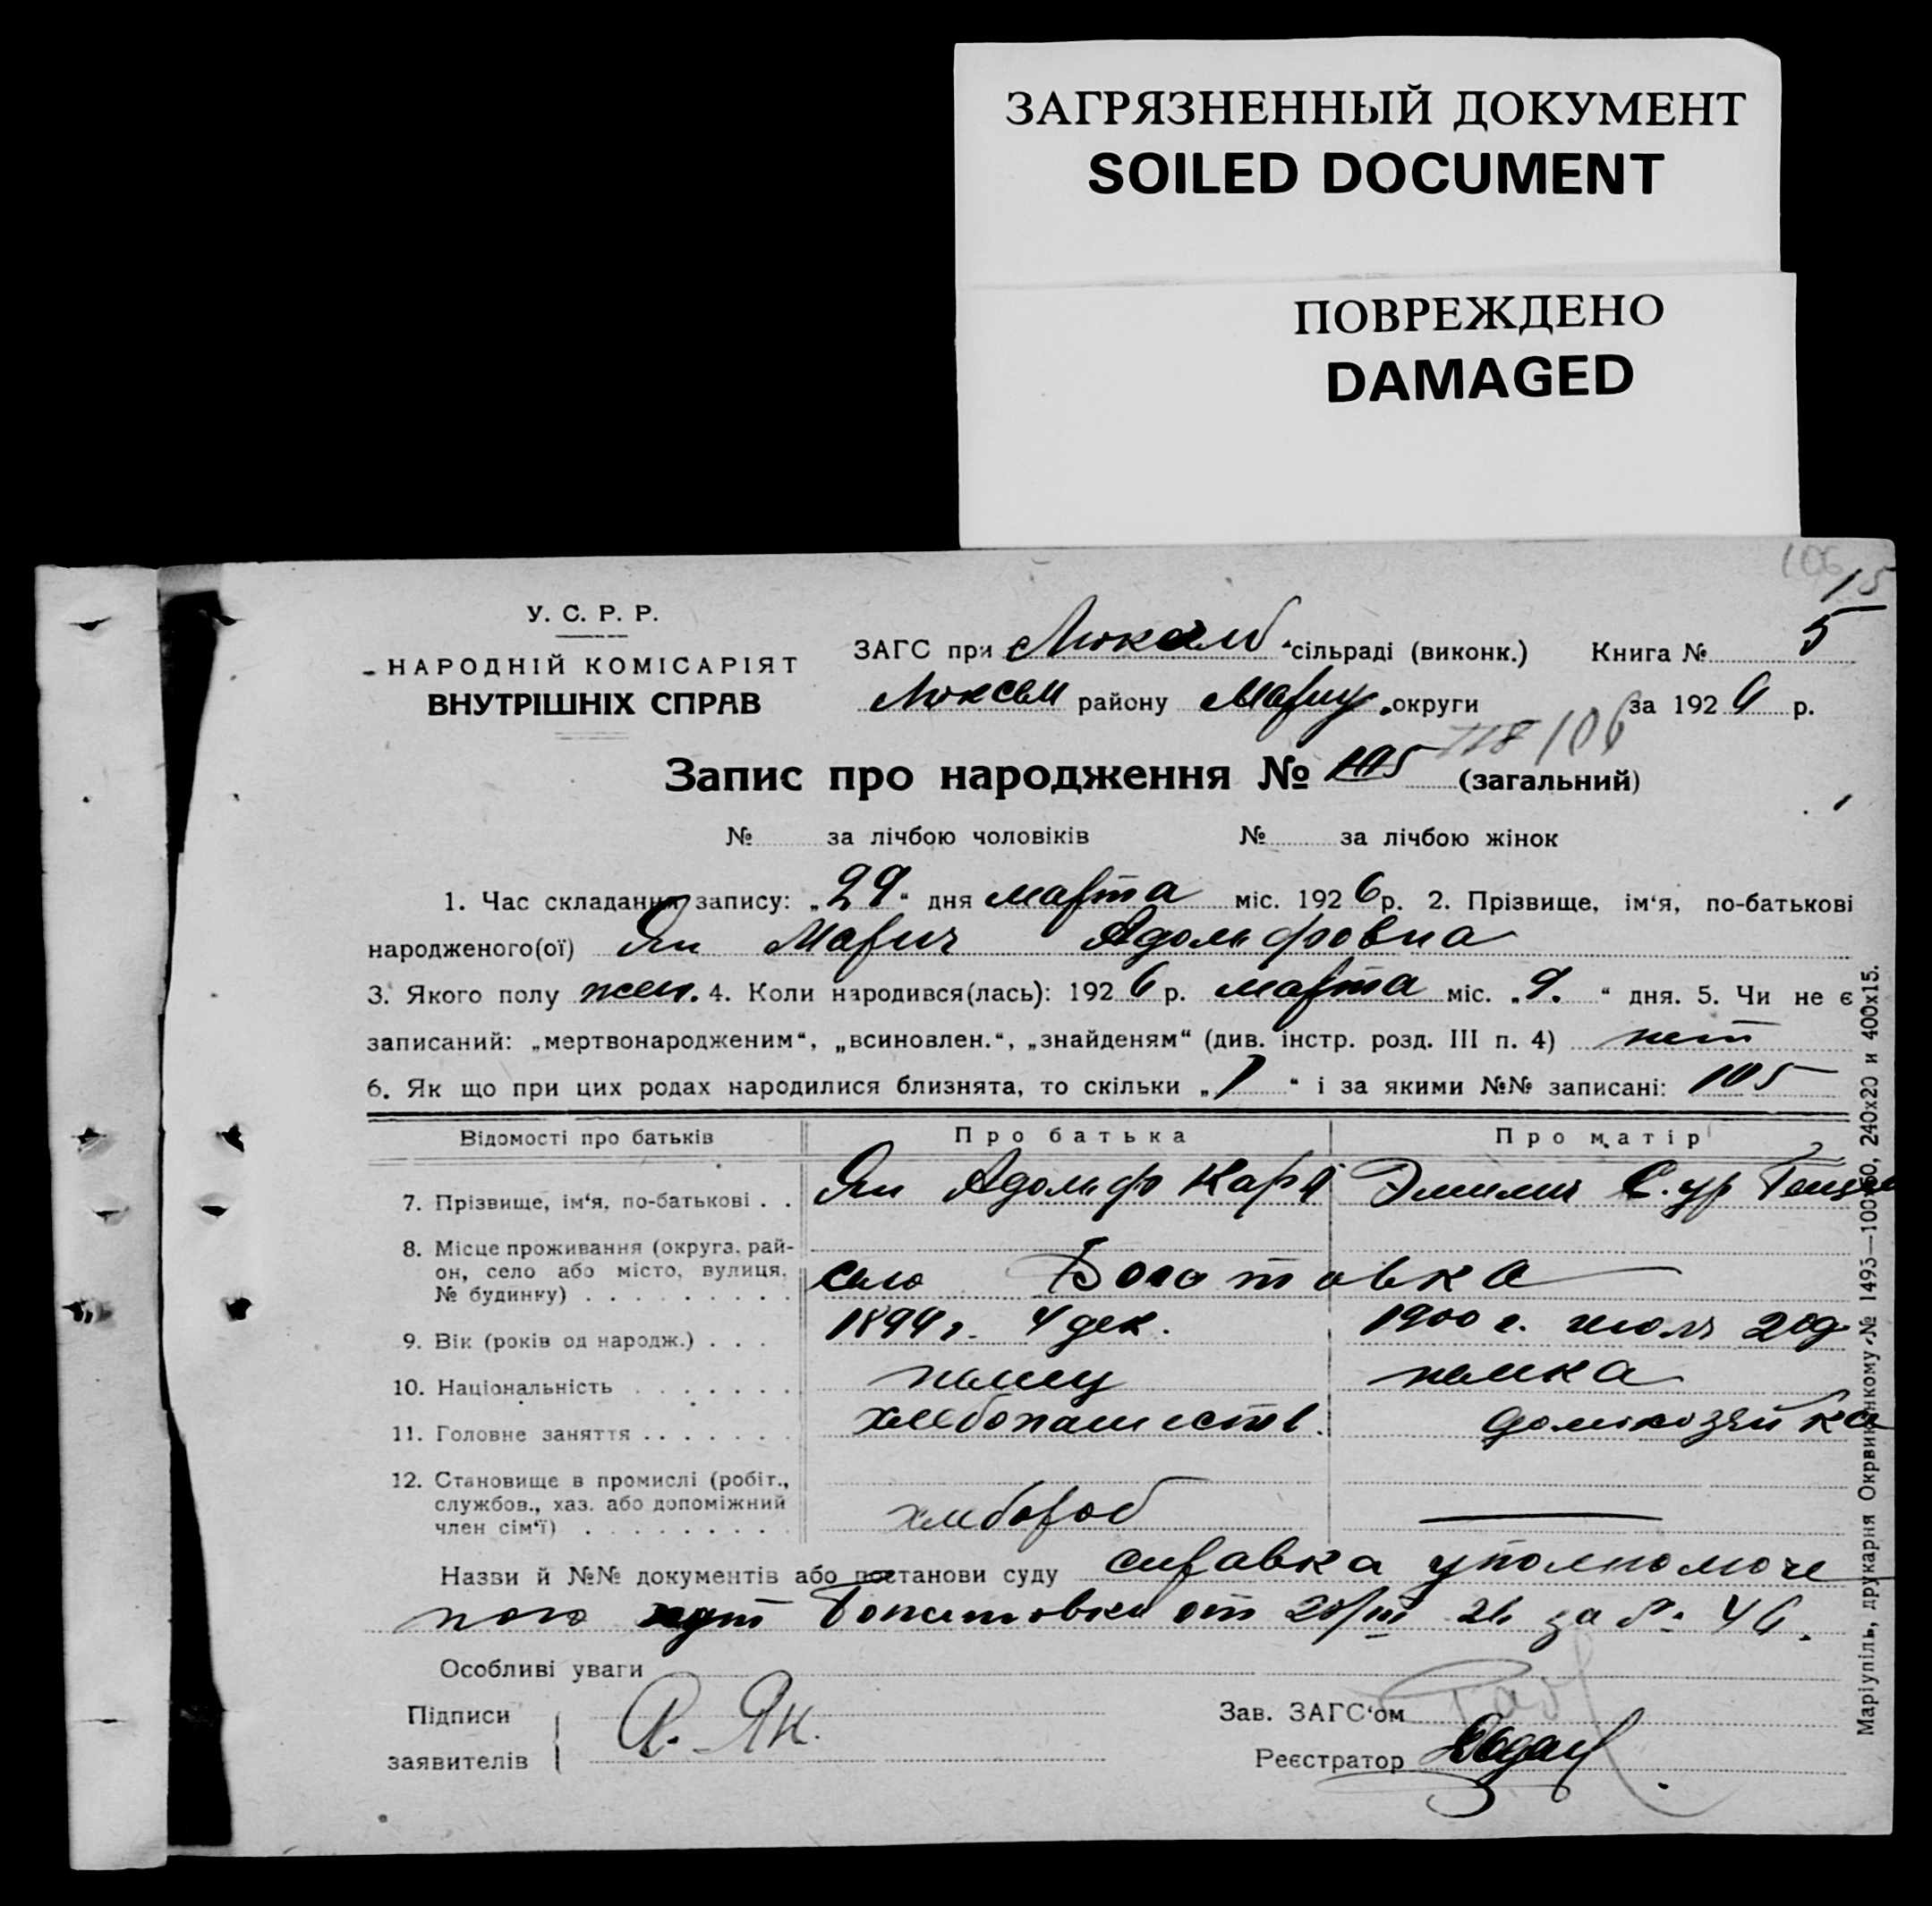 ЗАГРЯЗНЕННЫЙ ДОКУМЕНТ
SOILED DOCUMENT
ПОВРЕЖДЕНО
DAMAGED
106
15
У. С. Р. Р.
НАРОДНІЙ КОМІСАРІЯТ
ВНУТРІШНІХ СПРАВ
ЗАГС при сільраді (виконк.) Книга № 5
району Мариуп. округи за 192 р.
118/106
Запис про народження № 105 (загальний)
№ за лічбою чоловіків № за лічбою жінок
1. Час складання запису: „29“ дня марта міс. 1926 р. 2. Прізвище, ім‘я, по-батькові
народженого(ої) Ян Мария Адольфовна
3. Якого полу жен. 4. Коли народився(лась): 1926 р. марта міс. „9.“ дня. 5. Чи не є
записаний: „мертвонародженим“, „всиновлен.“, „знайденям“ (див. інстр. розд. III п. 4) нет
6. Як що при цих родах народилися близнята, то скільки „1“ і за якими №№ записані: 105
Відомості про батьків Про батька Про матір
7. Прізвище, ім‘я, по-батькові . . Ян Адольф Карл Эмилия
8. Місце проживання (округа, рай-
он, село або місто, вулиця,
№ будинку) . . . . . . . . . село Богатовка
9. Вік (років од народж.) . . . 1894 г. 4 дек. 1900 г. июля
10. Національність . . . . . . . немец немка
11. Головне заняття . . . . . . . хлебопашеств. домохозяйка
12. Становище в промислі (робіт.,
службов., хаз. або допоміжний
член сім‘ї) . . . . . . . . хлебороб
Назви й №№ документів або постанови суду справка уполномоче
ного от 20/III 26 за № 46.
Особливі уваги
Підписи
заявителів А. Ян.
Зав. ЗАГС‘ом
Реєстратор
Маріупіль, друкарня Окрвиконкому № 1493—100х60, 240х20 и 400х15.